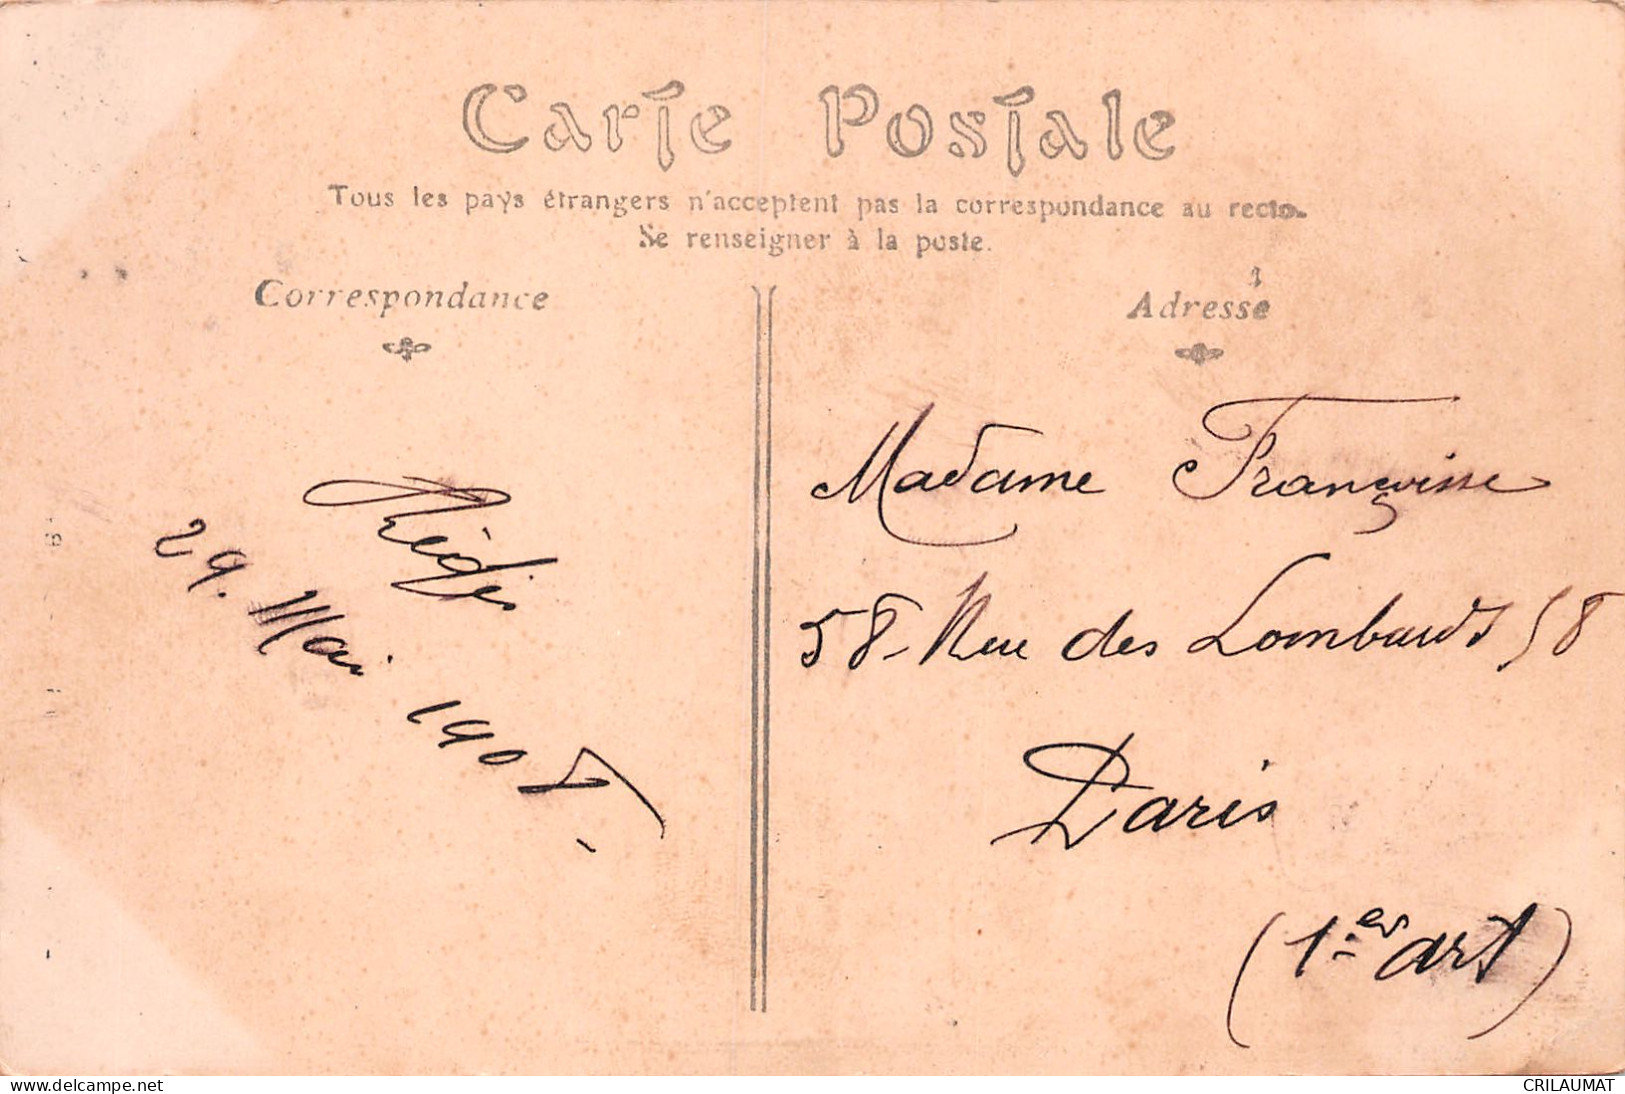 Carte Postale
Tous les pays étrangers n'acceptent pas la correspondance au recto.
Se renseigner à la poste.
Correspondance
Adresse
29. Mai 1905
Madame Françoise
58 - Rue des Lombards 58
Paris
(1er art)
www.delcampe.net
CRILAUMAT